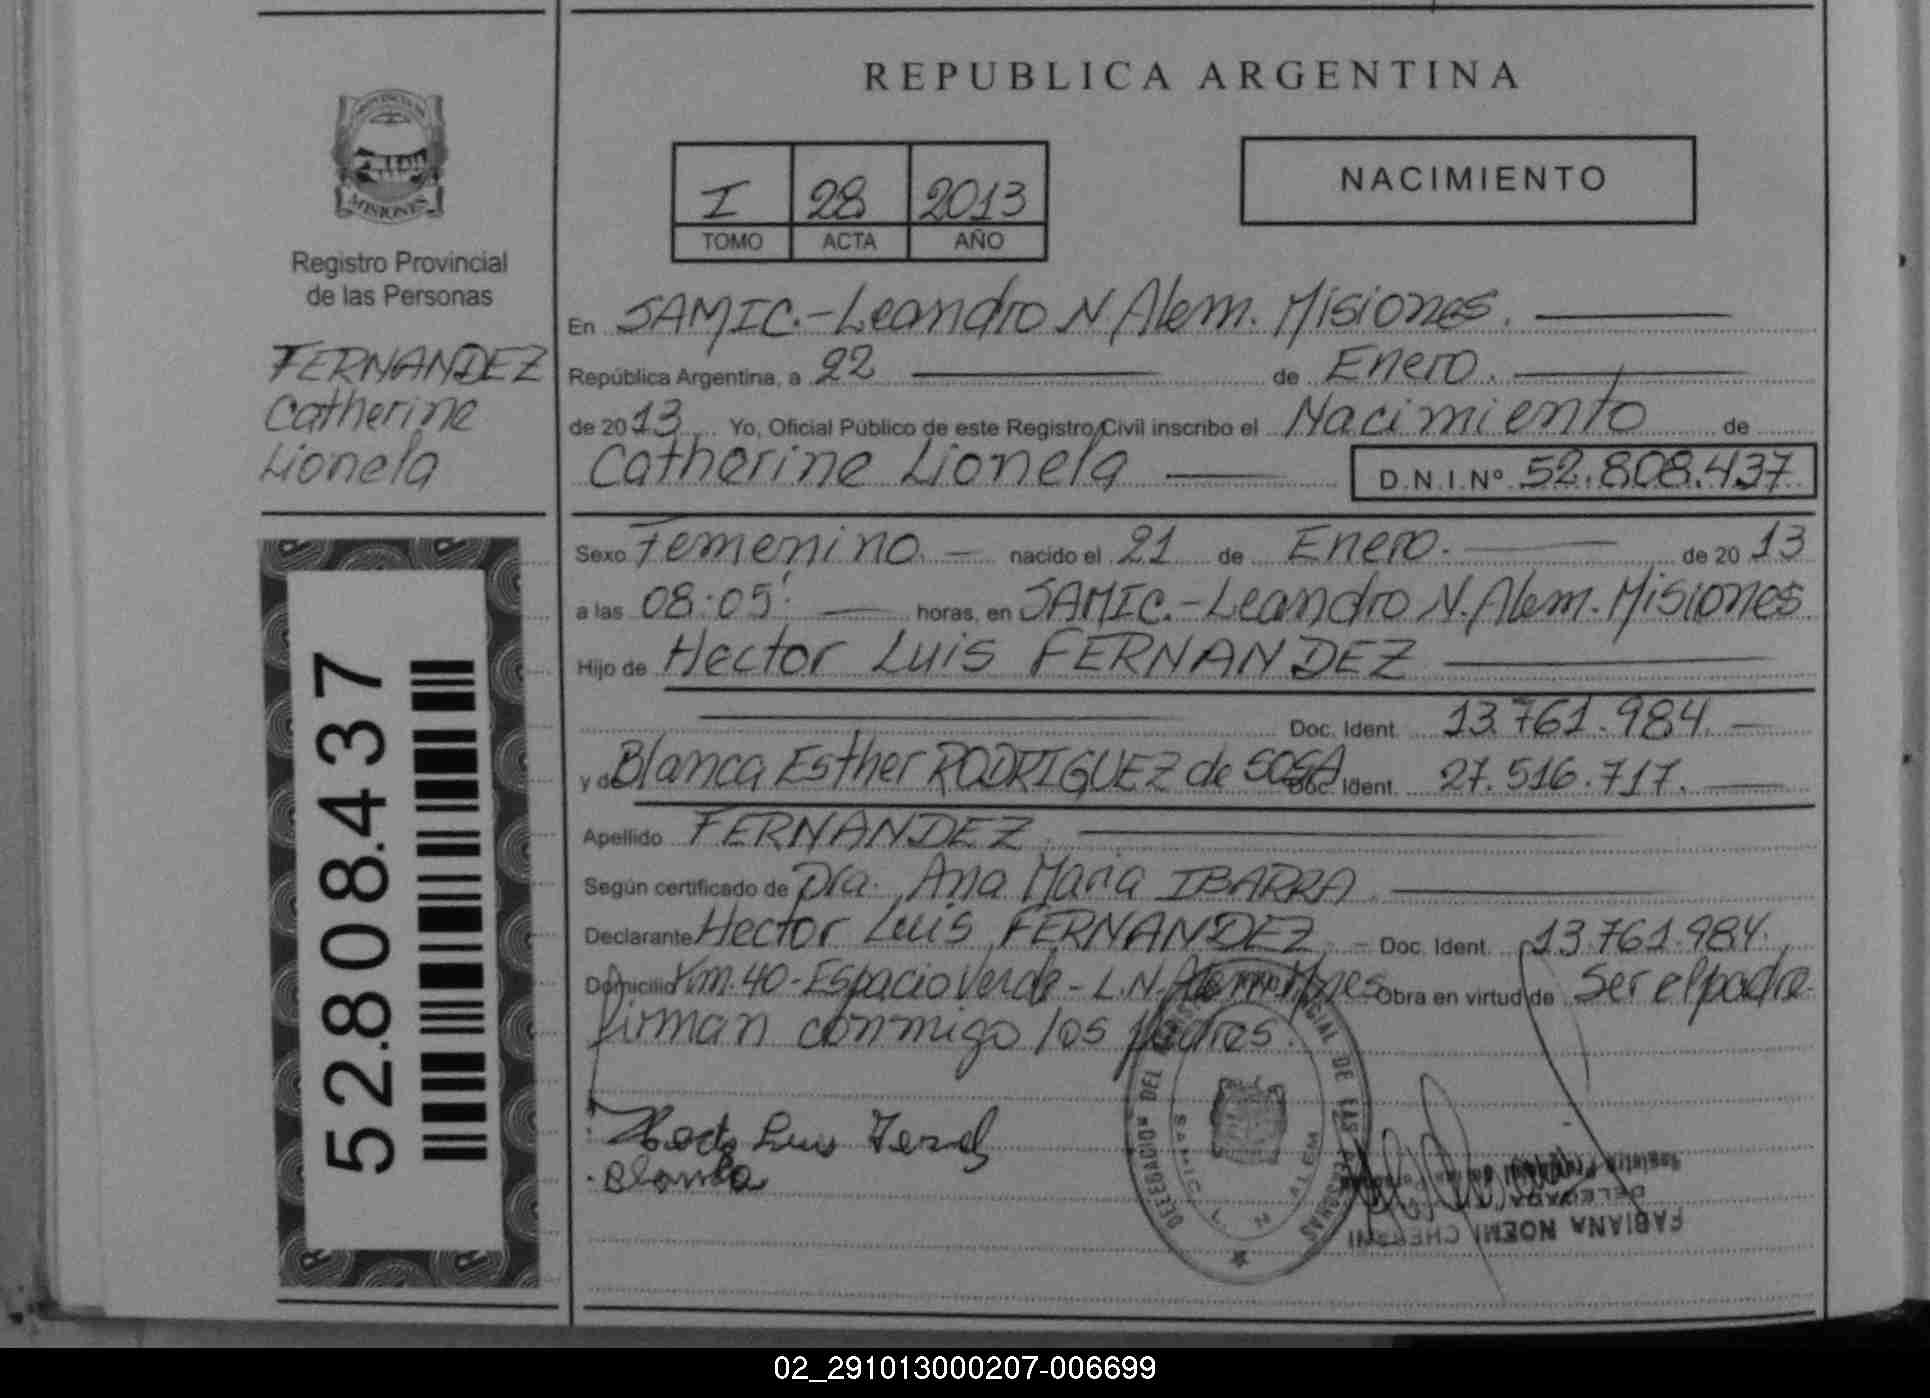 REPUBLICA ARGENTINA
PROVINCIA DE
MISIONES
Registro Provincial
de las Personas
FERNANDEZ
Catherine
Lionela
52.808.437
I 28 2013
TOMO ACTA AÑO
NACIMIENTO
En SAMIC.-Leandro N Alem. Misiones.
República Argentina, a 22 de Enero.
de 2013 Yo, Oficial Público de este Registro Civil inscribo el Nacimiento de
Catherine Lionela D.N.I.Nº 52.808.437
Sexo Femenino. nacido el 21 de Enero. de 20 13
a las 08:05' horas, en SAMIC.-Leandro N. Alem. Misiones
Hijo de Hector Luis FERNANDEZ
Doc. Ident. 13.761.984.
y de Blanca Esther RODRIGUEZ de SOSA Doc. Ident. 27.516.717.
Apellido FERNANDEZ
Según certificado de Dra. Ana Maria IBARRA.
Declarante Hector Luis FERNANDEZ Doc. Ident. 13.761.984.
Domicilio Km.40-Espacio Verde-L.N.Alem Mnes Obra en virtud de Ser el padre.
firman conmigo los padres.
DELEGACION DEL PROVINCIAL DE LAS PERSONAS
SAMIC L. N. ALEM
Luis
Blanca
Registro Provincial de las Personas
DELEGADA
FABIANA NOEMI
02_291013000207-006699